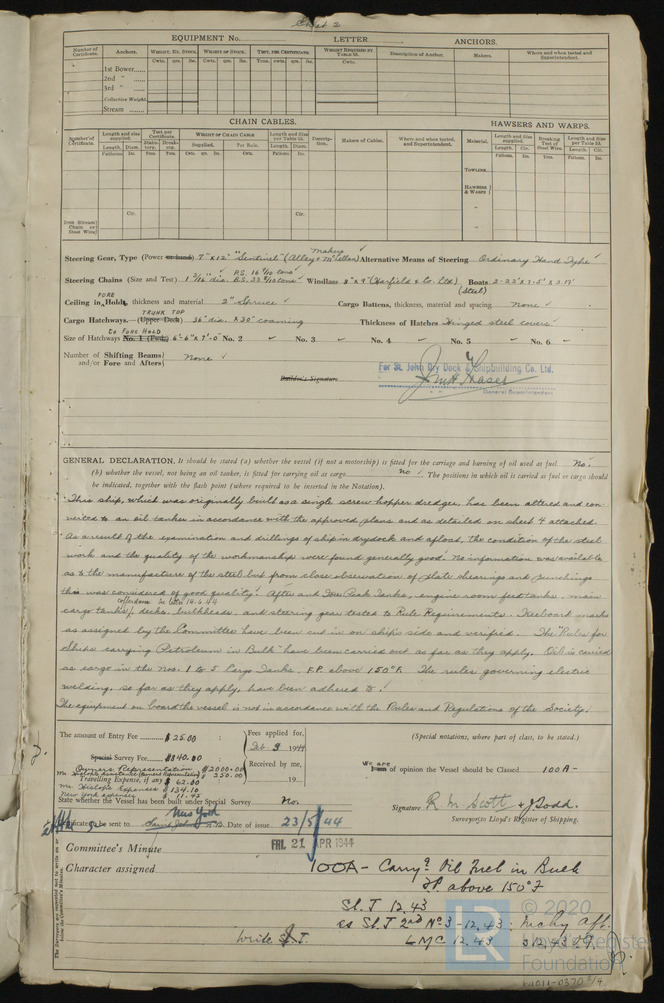 Sheet 2
EQUIPMENT No. LETTER ANCHORS.
Number of Certificate. Anchors. WEIGHT, EX. STOCK. WEIGHT OF STOCK. TEST, PER CERTIFICATE. WEIGHT REQUIRED BY TABLE 53. Description of Anchor. Makers. Where and when tested and Superintendent.
Cwts. qrs. lbs. Cwts. qrs. lbs. Tons. cwts. qrs. lbs. Cwts.
1st Bower
2nd "
3rd "
Collective Weight.
Stream
CHAIN CABLES. HAWSERS AND WARPS.
Number of Certificate. Length and size supplied. Test per Certificate. WEIGHT OF CHAIN CABLE Length and size per Table 53. Description. Makers of Cables. Where and when tested, and Superintendent. Material. Length and size supplied. Breaking Test of Steel Wire. Length and size per Table 53.
Length. Diam. Statutory. Breaking. Supplied. Per Rule. Length. Diam. Length. Cir. Length. Cir.
Fathoms. Ins. Tons. Tons. Cwts. qrs. lbs. Cwts. Fathoms. Ins. Fathoms. Ins. Tons. Fathoms. Ins.
TOWLINE
HAWSERS & WARPS
"
"
Cir. Cir.
Iron Stream Chain or Steel Wire
Steering Gear, Type (Power or hand) 7" x 12" "Sentinel" (Alley & McLellan) makers Alternative Means of Steering Ordinary Hand Type
Steering Chains (Size and Test) 1 3/16" dia. P.S. 16 9/10 tons B.S. Windlass 8" x 9" (Harfield & Co. Ltd) Boats (Steel)
Ceiling in FORE Hold, thickness and material 2" Spruce Cargo Battens, thickness, material and spacing none
Cargo Hatchways. (Upper Deck) TRUNK TOP 36" dia. x 30" coaming Thickness of Hatches Hinged steel covers
Size of Hatchways No. 1 (Fwd.) TO FORE HOLD 6'-6" x 7'-0" No. 2 No. 3 No. 4 No. 5 No. 6
Number of Shifting Beams and/or Fore and Afters none
Builder's Signature
For St. John Dry Dock & Shipbuilding Co. Ltd.
General Superintendent
GENERAL DECLARATION. It should be stated (a) whether the vessel (if not a motorship) is fitted for the carriage and burning of oil used as fuel No.
(b) whether the vessel, not being an oil tanker, is fitted for carrying oil as cargo no. The positions in which oil is carried as fuel or cargo should
be indicated, together with the flash point (where required to be inserted in the Notation).
This ship, which was originally built as a single screw hopper dredger, has been altered and con-
verted to an oil tanker in accordance with the approved plans and as detailed on sheet 4 attached.
As a result of the examination and drillings of ship in drydock and afloat, the condition of the steel
work and the quality of the workmanship were found generally good. No information was available
as to the manufacture of the steel but from close observation of plate shearings and punchings
this was considered of good quality. After and Fore Peak Tanks, engine room feed tanks, main
cofferdams see letter 14.6.44
cargo tanks, decks, bulkheads, and steering gear tested to Rule Requirements. Freeboard marks
as assigned by the Committee have been cut in on ship's side and verified. The "Rules for
Ships carrying Petroleum in Bulk" have been carried out as far as they apply. Oil is carried
as cargo in the Nos. 1 to 5 Cargo Tanks. F.P. above 150°F. The rules governing electric
welding, so far as they apply, have been adhered to.
The equipment on board the vessel is not in accordance with the Rules and Regulations of the Society.
The amount of Entry Fee $ 25.00 : Fees applied for, (Special notations, where part of class, to be stated.)
Special Survey Fee $840.00 : Feb 9 1944
Owners Representation $2000.00 Received by me, We are of opinion the Vessel should be Classed 100A-
(Owners Representation) $ 250.00
Travelling Expense, if any $ 62.00 19
Expenses $ 134.10
New York expenses $ 11.42
State whether the Vessel has been built under Special Survey No. Signature R. M. Scott & J. Dodd.
Surveyors to Lloyd's Register of Shipping.
Certificate to be sent to Saint John N.B. New York Date of issue 23/5/44
Committee's Minute FRI. 21 APR 1944
Character assigned 100A- Carryg Oil Fuel in Bulk
F.P. above 150°F
St. J 12.43
cs St. J 2nd No 3 - 12.43:
Write St. J. LMC 12.43
The Surveyors are requested not to write on or below the Committee's Minute.
© 2020
Lloyd's Register
Foundation